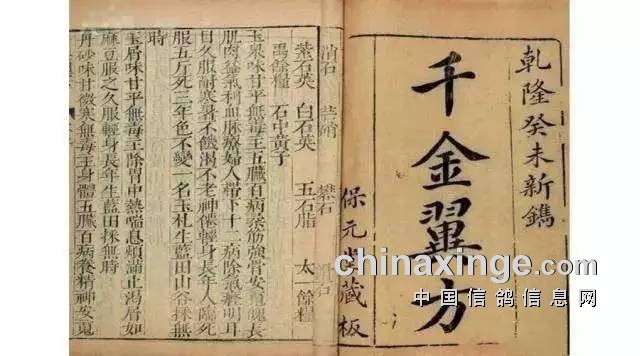 乾隆癸未新鐫
千金翼方
保元堂藏板
消石 芒硝 礬石 石
紫石英 白石英 五石脂 太一餘糧
禹餘糧 石中黃子
玉泉味甘平無毒主五臟百病柔筋強骨安魂魄長
肌肉益氣利血脈療婦人帶下十二病除氣癃明耳
目久服耐寒暑不饑渴不老神僊輕身長年人臨死
服五斤死三年色不變一名玉札生藍田山谷採無
時
玉屑味甘平無毒主除胃中熱喘息煩滿止渴屑如
麻豆服之久服輕身長年生藍田採無時
丹砂味甘微寒無毒主身體五臟百病養精神安魂
chinaxinge.com
中国信鸽信息网